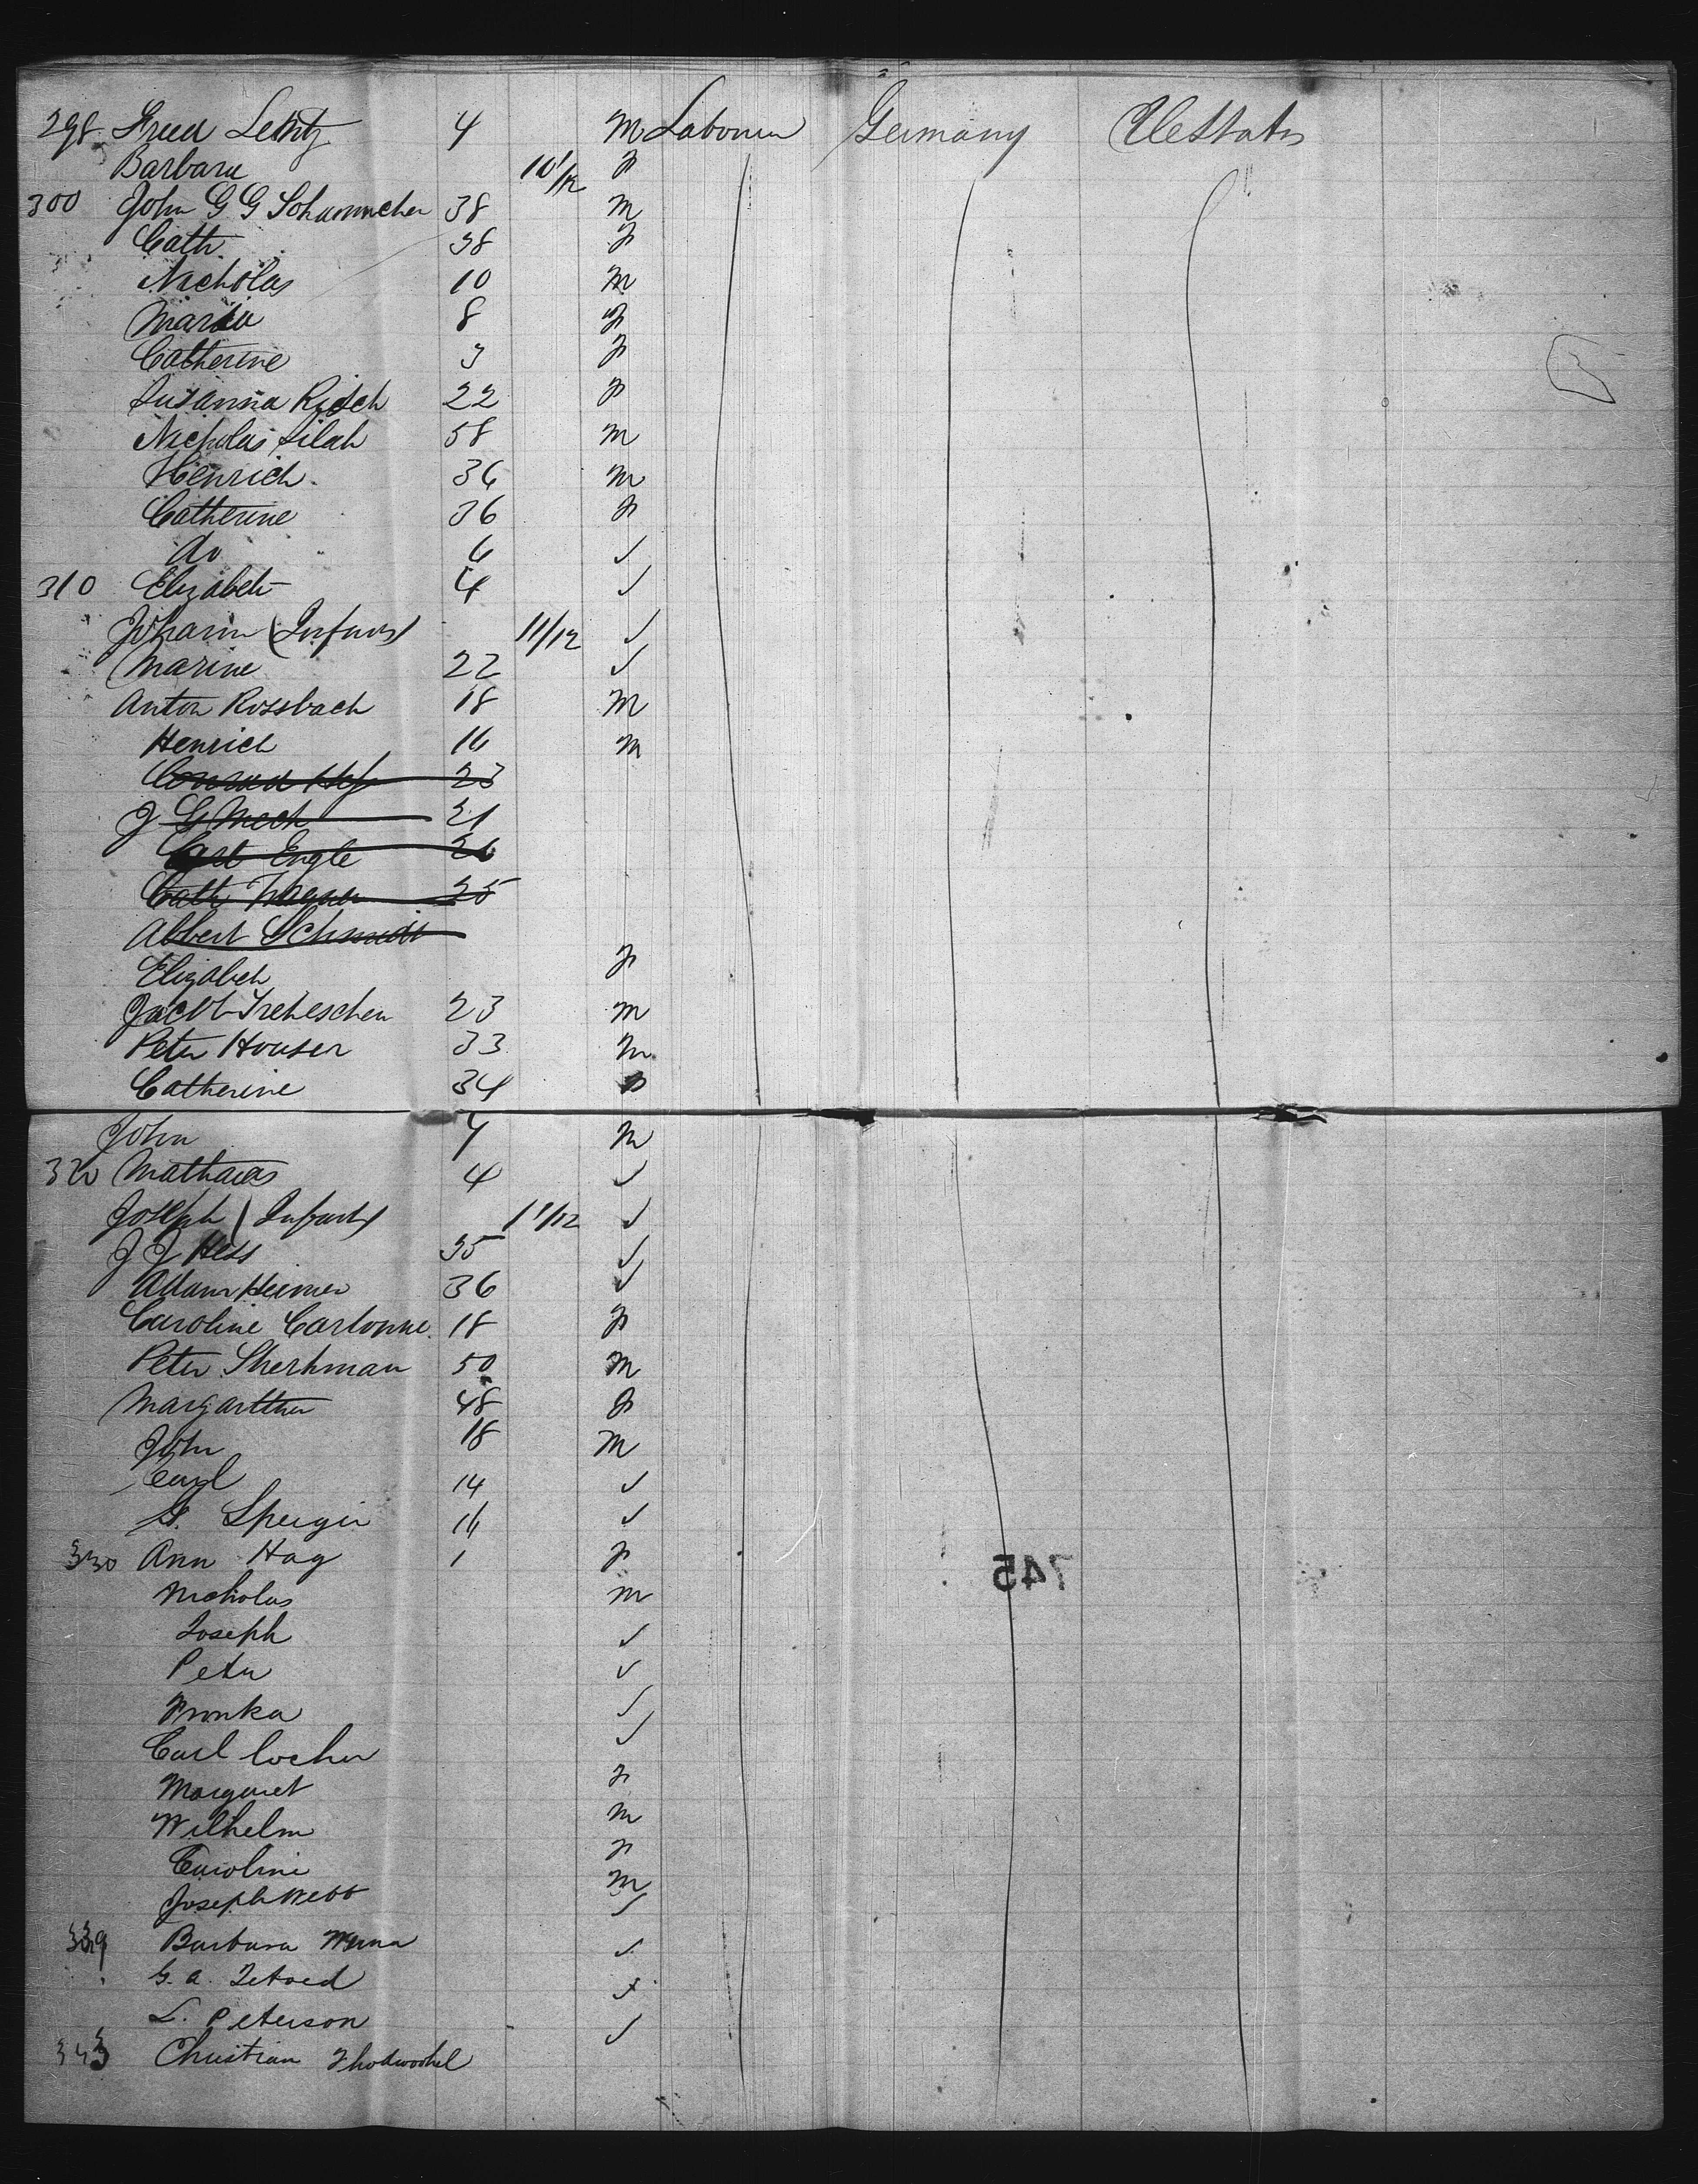 298 Freed Lentz 4 M Labourer Germany U States
Barbara 10/12 F
300 John G G Schumacher 38 M
Cath. 38 F
Nicholas 10 M
Maria 8 F
Catherine 3 F
Susanna Risch 22 F
Nicholas Silah 58 M
Henrich 36 M
Catherine 36 F
do 6 ✓
310 Elizabeth 4 ✓
Johann (Infant) 11/12 ✓
Marine 22 ✓
Anton Rossbach 18 M
Henrich 16 M
Conrad 23
J G Mech 21
Carl Engle 26
Cath Wagner 25
Albert Schmidt
Elizabeh F
Jacob 23 M
Peter Houser 33 M
Catherine 34 F
John 7 M
320 Mathaes 4 ✓
Joseph (Infant) 11/12 ✓
J J Hess 35 ✓
Adam Heimer 36 ✓
Caroline Cartonne 18 F
Peter Sherhman 50 M
Margartther 48 F
John 18 M
Carl 14 ✓
Sperger 16 ✓
330 Ann Hag 1 F
Nicholas M
Joseph ✓
Peter ✓
Fronka ✓
Carl Locher ✓
Margaret F
Wilhelm M
Caroline F
Joseph Webb M
339 Barbara ✓
G. A. ✓
L. Peterson ✓
343 Christian
745